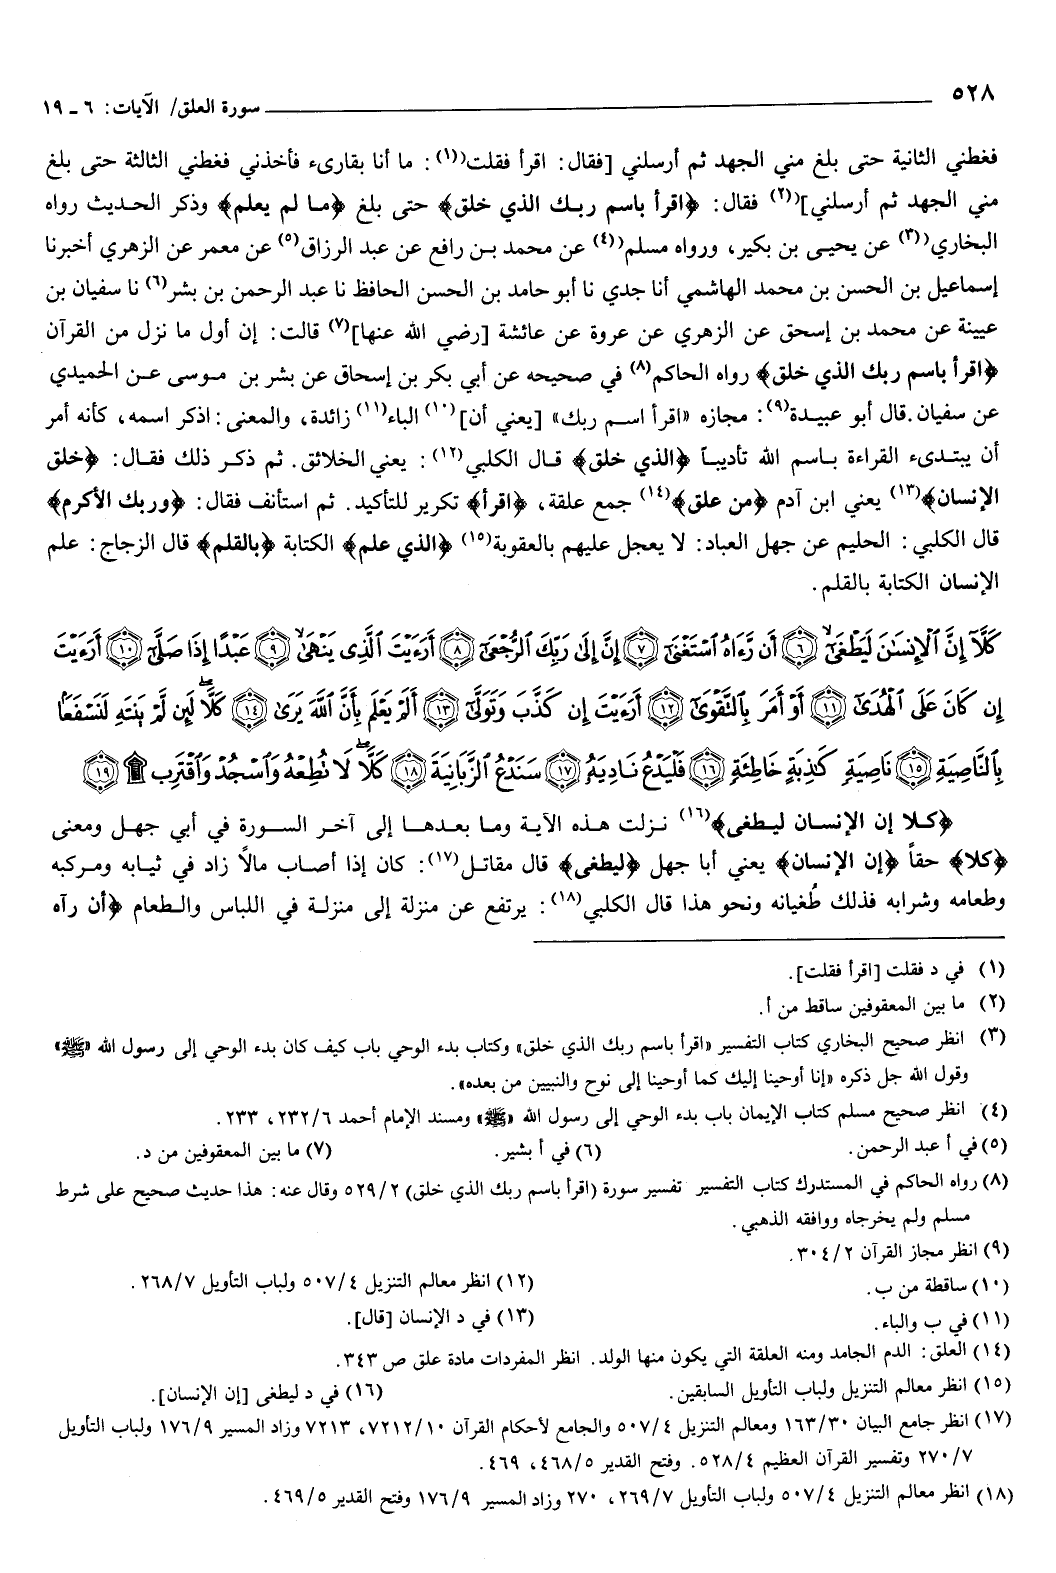 ٥٢٨ سورة العلق/ الآيات: ٦ ـ ١٩
فغطني الثانية حتى بلغ مني الجهد ثم أرسلني [فقال: اقرأ فقلت(١): ما أنا بقارىء فأخذني فغطني الثالثة حتى بلغ
مني الجهد ثم أرسلني](٢) فقال: ﴿اقرأ باسم ربك الذي خلق﴾ حتى بلغ ﴿ما لم يعلم﴾ وذكر الحديث رواه
البخاري(٣) عن يحيى بن بكير، ورواه مسلم(٤) عن محمد بن رافع عن عبد الرزاق(٥) عن معمر عن الزهري أخبرنا
إسماعيل بن الحسن بن محمد الهاشمي أنا جدي نا أبو حامد بن الحسن الحافظ نا عبد الرحمن بن بشر(٦) نا سفيان بن
عيينة عن محمد بن إسحق عن الزهري عن عروة عن عائشة [رضي الله عنها](٧) قالت: إن أول ما نزل من القرآن
﴿اقرأ باسم ربك الذي خلق﴾ رواه الحاكم(٨) في صحيحه عن أبي بكر بن إسحاق عن بشر بن موسى عن الحميدي
عن سفيان. قال أبو عبيدة(٩): مجازه «اقرأ اسم ربك» [يعني أن](١٠) الباء(١١) زائدة، والمعنى: اذكر اسمه، كأنه أمر
أن يبتدىء القراءة باسم الله تأديباً ﴿الذي خلق﴾ قال الكلبي(١٢): يعني الخلائق. ثم ذكر ذلك فقال: ﴿خلق
الإنسان﴾(١٣) يعني ابن آدم ﴿من علق﴾(١٤) جمع علقة، ﴿اقرأ﴾ تكرير للتأكيد. ثم استأنف فقال: ﴿وربك الأكرم﴾
قال الكلبي: الحليم عن جهل العباد: لا يعجل عليهم بالعقوبة(١٥) ﴿الذي علم﴾ الكتابة ﴿بالقلم﴾ قال الزجاج: علم
الإنسان الكتابة بالقلم.
كَلَّآ إِنَّ ٱلْإِنسَٰنَ لَيَطْغَىٰٓ ﴿٦﴾ أَن رَّءَاهُ ٱسْتَغْنَىٰٓ ﴿٧﴾ إِنَّ إِلَىٰ رَبِّكَ ٱلرُّجْعَىٰٓ ﴿٨﴾ أَرَءَيْتَ ٱلَّذِى يَنْهَىٰ ﴿٩﴾ عَبْدًا إِذَا صَلَّىٰٓ ﴿١٠﴾ أَرَءَيْتَ
إِن كَانَ عَلَى ٱلْهُدَىٰٓ ﴿١١﴾ أَوْ أَمَرَ بِٱلتَّقْوَىٰٓ ﴿١٢﴾ أَرَءَيْتَ إِن كَذَّبَ وَتَوَلَّىٰٓ ﴿١٣﴾ أَلَمْ يَعْلَم بِأَنَّ ٱللَّهَ يَرَىٰ ﴿١٤﴾ كَلَّا لَئِن لَّمْ يَنتَهِ لَنَسْفَعًۢا
بِٱلنَّاصِيَةِ ﴿١٥﴾ نَاصِيَةٍ كَٰذِبَةٍ خَاطِئَةٍ ﴿١٦﴾ فَلْيَدْعُ نَادِيَهُۥ ﴿١٧﴾ سَنَدْعُ ٱلزَّبَانِيَةَ ﴿١٨﴾ كَلَّا لَا تُطِعْهُ وَٱسْجُدْ وَٱقْتَرِب ۩ ﴿١٩﴾
﴿كلا إن الإنسان ليطغى﴾(١٦) نزلت هذه الآية وما بعدها إلى آخر السورة في أبي جهل ومعنى
﴿كلا﴾ حقاً ﴿إن الإنسان﴾ يعني أبا جهل ﴿ليطغى﴾ قال مقاتل(١٧): كان إذا أصاب مالاً زاد في ثيابه ومركبه
وطعامه وشرابه فذلك طُغيانه ونحو هذا قال الكلبي(١٨): يرتفع عن منزلة إلى منزلة في اللباس والطعام ﴿أن رآه
(١) في د فقلت [اقرأ فقلت].
(٢) ما بين المعقوفين ساقط من أ.
(٣) انظر صحيح البخاري كتاب التفسير «اقرأ باسم ربك الذي خلق» وكتاب بدء الوحي باب كيف كان بدء الوحي إلى رسول الله «ﷺ»
وقول الله جل ذكره «إنا أوحينا إليك كما أوحينا إلى نوح والنبيين من بعده».
(٤) انظر صحيح مسلم كتاب الإيمان باب بدء الوحي إلى رسول الله «ﷺ» ومسند الإمام أحمد ٢٣٢/٦، ٢٣٣.
(٥) في أ عبد الرحمن. (٦) في أ بشير. (٧) ما بين المعقوفين من د.
(٨) رواه الحاكم في المستدرك كتاب التفسير تفسير سورة (اقرأ باسم ربك الذي خلق) ٥٢٩/٢ وقال عنه: هذا حديث صحيح على شرط
مسلم ولم يخرجاه ووافقه الذهبي.
(٩) انظر مجاز القرآن ٣٠٤/٢.
(١٠) ساقطة من ب. (١٢) انظر معالم التنزيل ٥٠٧/٤ ولباب التأويل ٢٦٨/٧.
(١١) في ب والباء. (١٣) في د الإنسان [قال].
(١٤) العلق: الدم الجامد ومنه العلقة التي يكون منها الولد. انظر المفردات مادة علق ص ٣٤٣.
(١٥) انظر معالم التنزيل ولباب التأويل السابقين. (١٦) في د ليطغى [إن الإنسان].
(١٧) انظر جامع البيان ١٦٣/٣٠ ومعالم التنزيل ٥٠٧/٤ والجامع لأحكام القرآن ٧٢١٢/١٠، ٧٢١٣ وزاد المسير ١٧٦/٩ ولباب التأويل
٢٧٠/٧ وتفسير القرآن العظيم ٥٢٨/٤. وفتح القدير ٤٦٨/٥، ٤٦٩.
(١٨) انظر معالم التنزيل ٥٠٧/٤ ولباب التأويل ٢٦٩/٧، ٢٧٠ وزاد المسير ١٧٦/٩ وفتح القدير ٤٦٩/٥.